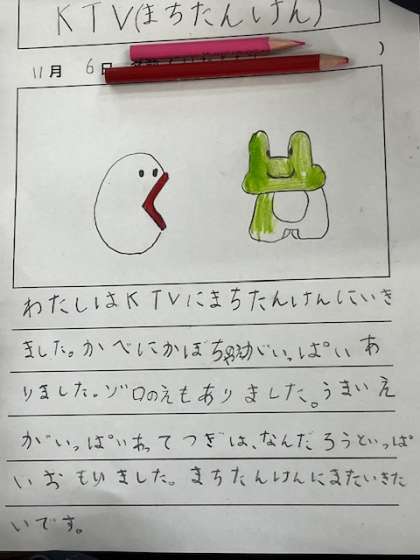 KTV(まちたんけん)
11月 6日
)
わたしはKTVにまちたんけんにいき
ました。かべにかぼちゃがいっぱいあ
りました。ゾロのえもありました。うまいえ
がいっぱいあって つぎは、なんだろうといっぱ
いおもいました。まちたんけんにまたいきた
いです。